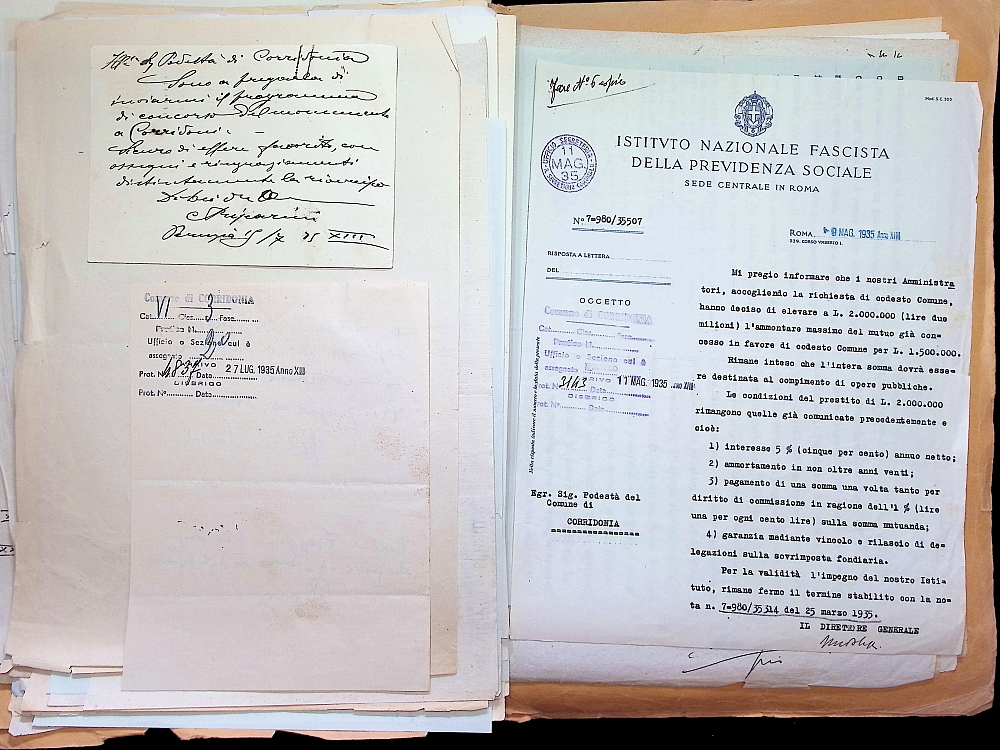 Podestà di Corridonia
Sono a pregarla di
inviarmi il programma
di concorso del monumento
a Corridoni. —
Sicuro di essere favorito, con
ossequi e ringraziamenti
distintamente la riverisco
XIII
Comune di CORRIDONIA
Cat. VI Clas. 3 Fasc.
Pratica N.
Ufficio o Sezione cui è
assegnato
ARRIVO
Prot. N. 4839 Data 27 LUG. 1935 Anno XIII
DISBRIGO
Prot. N. Data
Fare N° 6 copie
Mod. S C 300
UFFICIO SEGRETERIA
11
MAG.
35
ISTITVTO NAZIONALE FASCISTA
DELLA PREVIDENZA SOCIALE
SEDE CENTRALE IN ROMA
N° 7=980/35507
ROMA, 9 MAG. 1935 Anno XIII
RISPOSTA A LETTERA
DEL
OGGETTO
Comune di CORRIDONIA
Cat. Clas. Fasc.
Pratica N.
Ufficio o Sezione cui è
assegnato
ARRIVO
Prot. N. 3143 Data 11 MAG. 1935 Anno XIII
DISBRIGO
Prot. N. Data
Egr. Sig. Podestà del
Comune di
CORRIDONIA
Mi pregio informare che i nostri Amministra
tori, accogliendo la richiesta di codesto Comune,
hanno deciso di elevare a L. 2.000.000 (lire due
milioni) l'ammontare massimo del mutuo già con=
cesso in favore di codesto Comune per L. 1.500.000.
Rimane inteso che l'intera somma dovrà esse=
re destinata al compimento di opere pubbliche.
Le condizioni del prestito di L. 2.000.000
rimangono quelle già comunicate precedentemente e
cioè:
1) interesse 5 % (cinque per cento) annuo netto;
2) ammortamento in non oltre anni venti;
3) pagamento di una somma una volta tanto per
diritto di commissione in ragione dell'1 % (lire
una per ogni cento lire) sulla somma mutuanda;
4) garanzia mediante vincolo e rilascio di de=
legazioni sulla sovrimposta fondiaria.
Per la validità l'impegno del nostro Isti=
tuto, rimane fermo il termine stabilito con la no=
ta n. 7=980/35314 del 25 marzo 1935.
IL DIRETTORE GENERALE